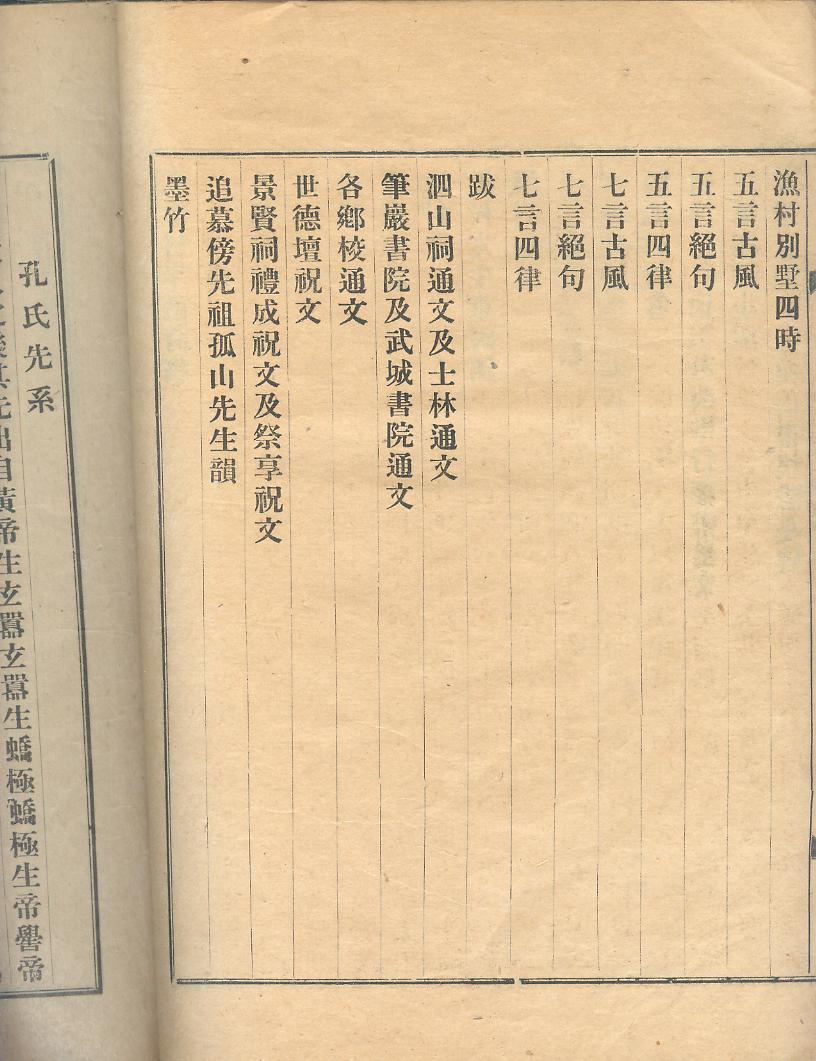 漁村別墅四時
五言古風
五言絕句
五言四律
七言古風
七言絕句
七言四律
跋
泗山祠通文及士林通文
筆巖書院及武城書院通文
各鄕校通文
世德壇祝文
景賢祠禮成祝文及祭享祝文
追慕傍先祖孤山先生韻
墨竹
孔氏先系
後其先出自黃帝生玄囂玄囂生蟜極蟜極生帝嚳帝